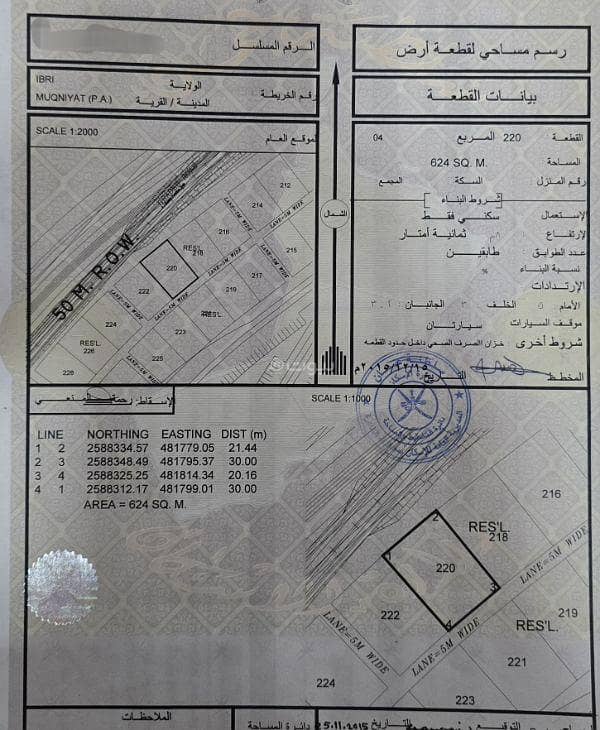 رسم مساحي لقطعة أرض
الرقم المسلسل
بيانات القطعة
IBRI الولاية
MUQNIYAT (P.A.) المدينة / القرية رقم الخريطة :
القطعة 220 المربع 04
المساحة 624 SQ. M.
رقم المنزل السكة المجمع
شروط البناء
الإستعمال سكني فقط
الإرتفاع ثمانية أمتار
عدد الطوابق طابقين
نسبة البناء %
الإرتدادات
الأمام ٥ الخلف ٣ الجانبان
موقف السيارات سيارتان
شروط أخرى خزان الصرف الصحي داخل حدود القطعه
المخطط
الشمال
SCALE 1:2000 الموقع العام
50 M. R.O.W
212
214
216
RES'L.
218
220
222
224
215
217
219
221
223
RES'L.
RES'L.
226
228
LANE=5M WIDE
LANE=5M WIDE
LANE=5M WIDE
LANE=5M WIDE
LANE=5M WIDE
SCALE 1:1000
LINE NORTHING EASTING DIST (m)
1 2 2588334.57 481779.05 21.44
2 3 2588348.49 481795.37 30.00
3 4 2588325.25 481814.34 20.16
4 1 2588312.17 481799.01 30.00
AREA = 624 SQ. M.
216
RES'L.
218
220
1
2
3
4
222
LANE=5M WIDE
219
RES'L.
LANE=5M WIDE
LANE=5M WIDE
221
224
223
الملاحظات
دائرة المساحة 25.11.2015 التاريخ التوقيع